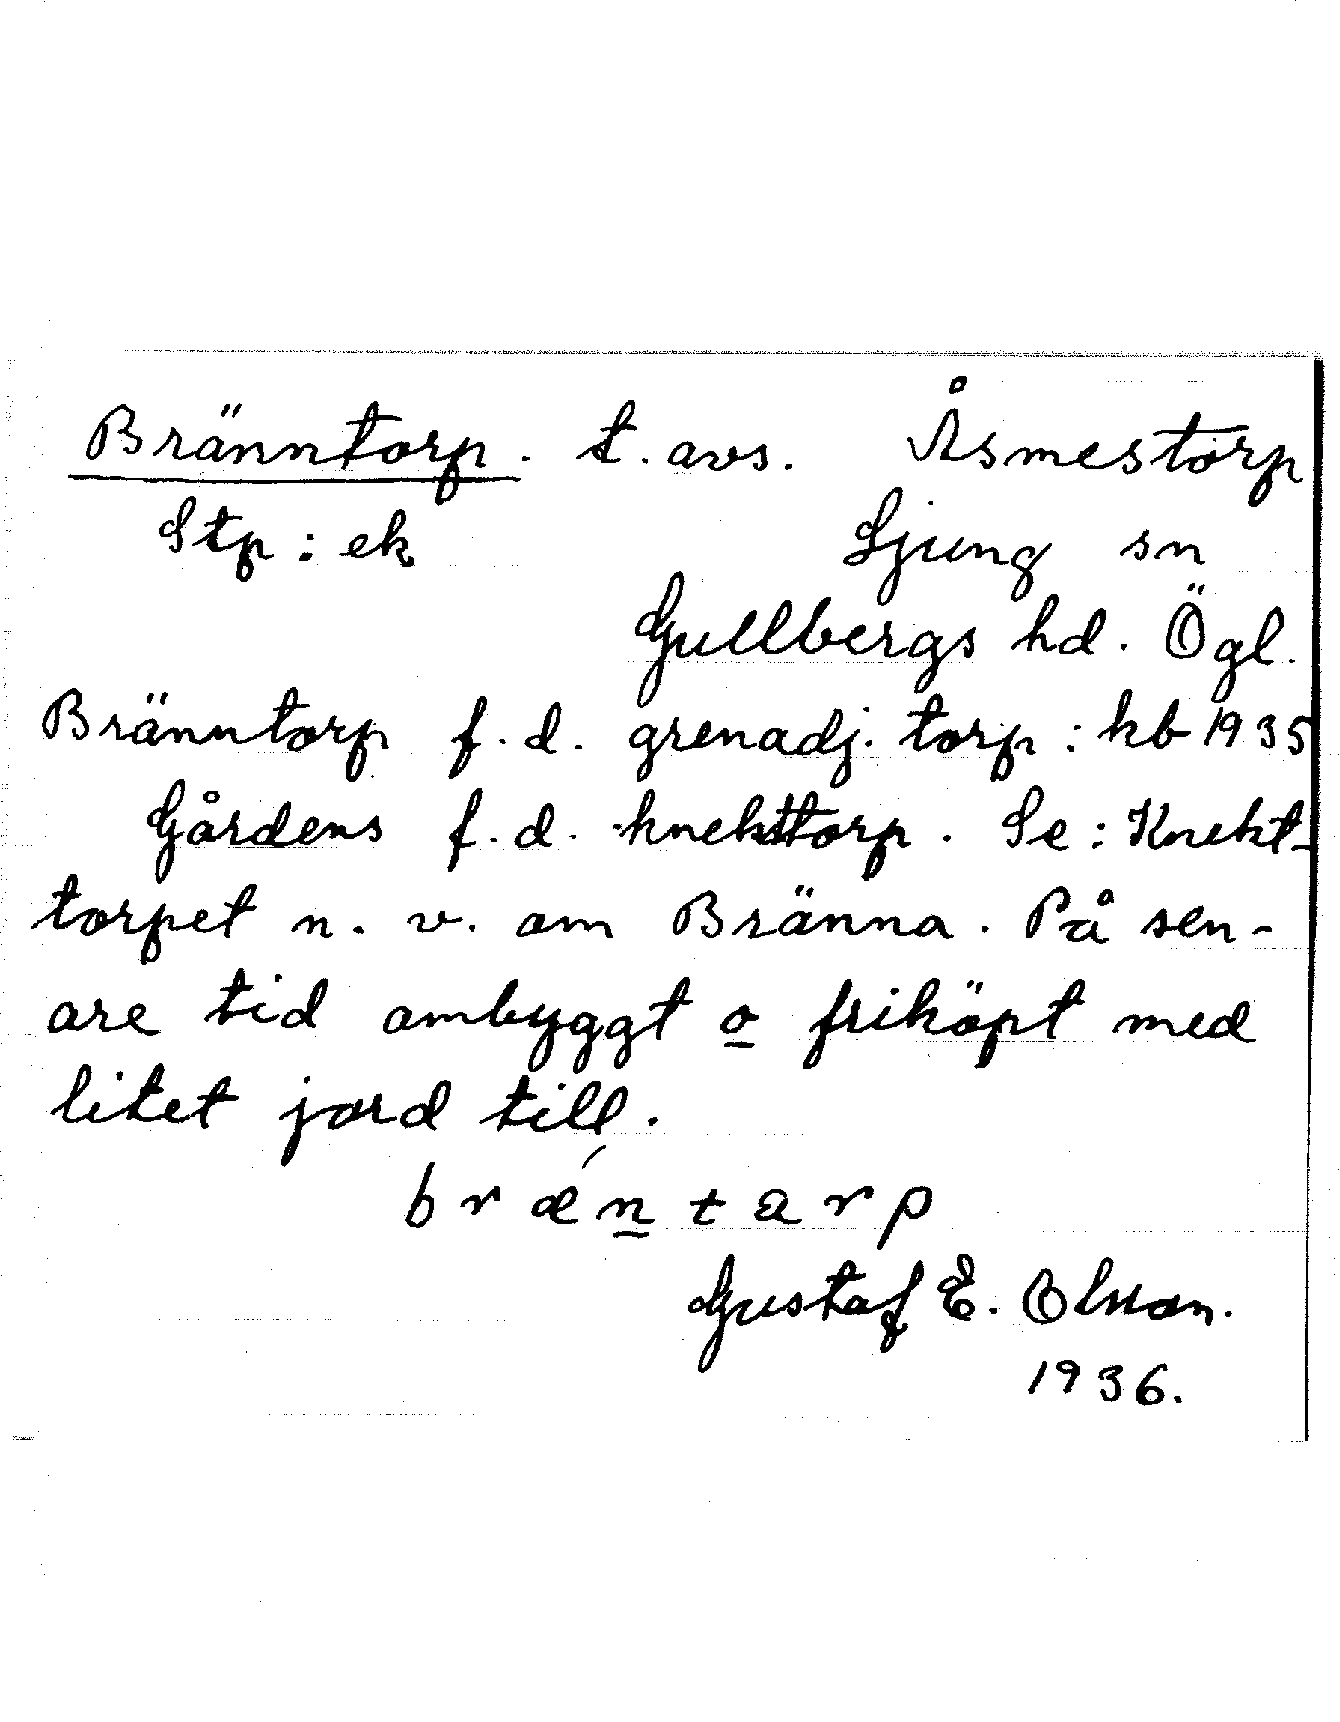 Bränntorp. t. avs. Åsmestorp
Stp: ek Ljung sn
Gullbergs hd. Ögl.
Bränntorp f.d. grenadj. torp: kb 1935
Gårdens f.d. knekttorp. Se: Knekt-
torpet n. v. om Bränna. På sen-
are tid ombyggt o friköpt med
litet jord till.
brǽntarp
Gustaf E. Olsson.
1936.